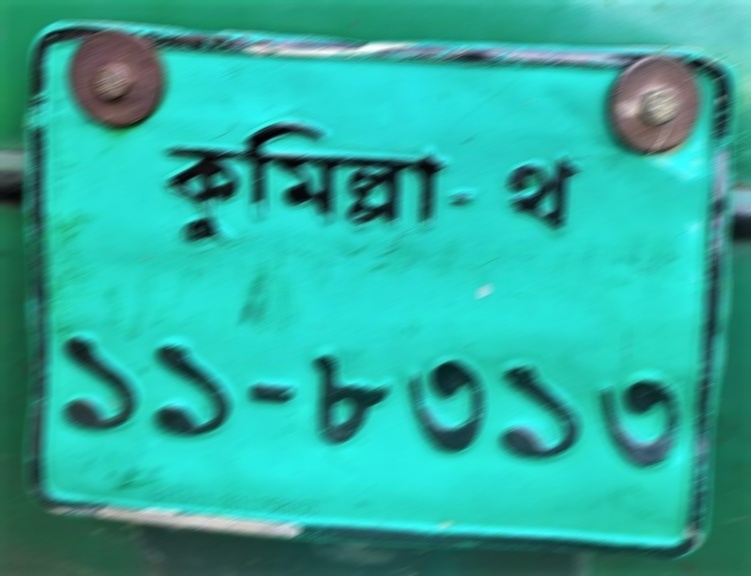 কুমিল্লা - থ
১১-৮৩১৩